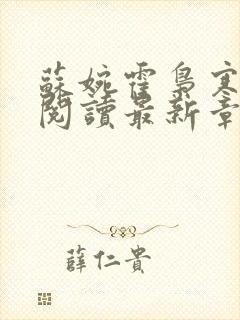 蘇婉霍梟寒
閱讀最新章
薛仁貴